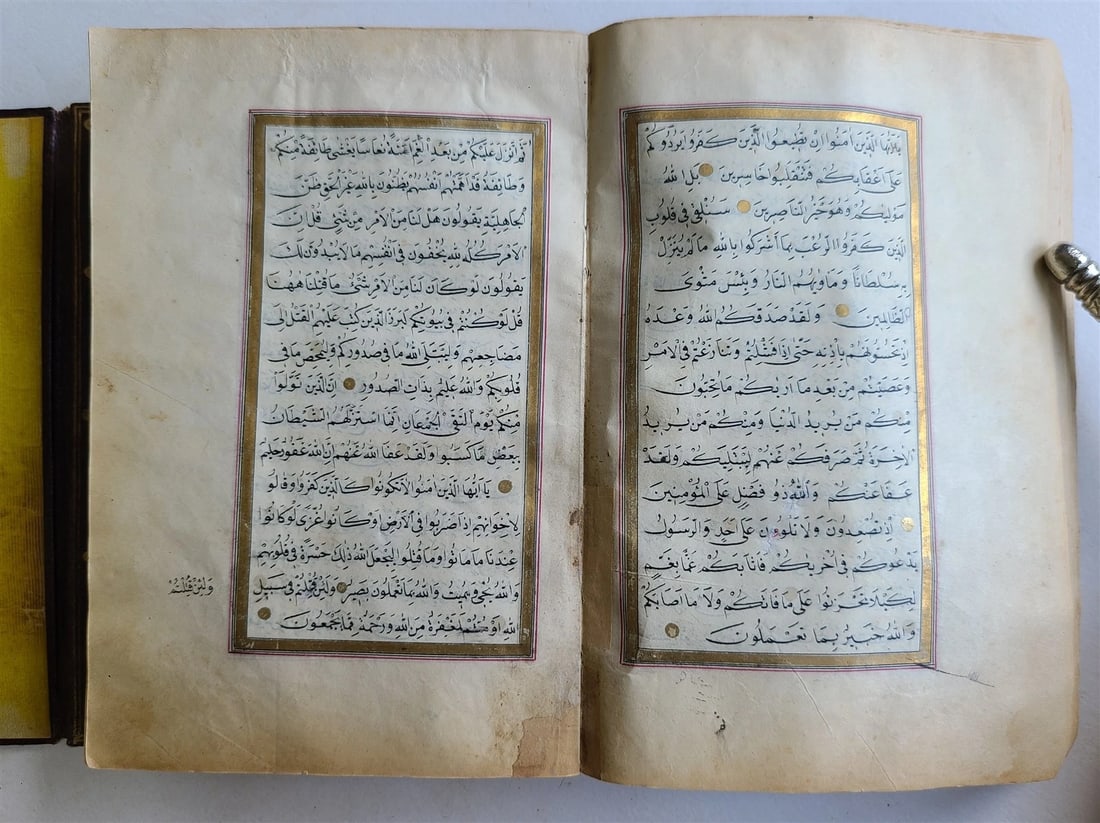 ياايها الذين امنوا ان تطيعوا الذين كفروا يردوكم
على اعقابكم فتنقلبوا خاسرين بل الله
موليكم وهو خير الناصرين سنلقي في قلوب
الذين كفروا الرعب بما اشركوا بالله ما لم ينزل
به سلطانا وماويهم النار وبئس مثوى
الظالمين ولقد صدقكم الله وعده
اذ تحسونهم باذنه حتى اذا فشلتم وتنازعتم في الامر
وعصيتم من بعد ما اريكم ما تحبون
منكم من يريد الدنيا ومنكم من يريد
الاخرة ثم صرفكم عنهم ليبتليكم ولقد
عفا عنكم والله ذو فضل على المؤمنين
اذ تصعدون ولا تلون على احد والرسول
يدعوكم في اخريكم فاثابكم غما بغم
لكيلا تحزنوا على ما فاتكم ولا ما اصابكم
والله خبير بما تعملون
ثم
ثم انزل عليكم من بعد الغم امنة نعاسا يغشى طائفة منكم
وطائفة قد اهمتهم انفسهم يظنون بالله غير الحق ظن
الجاهلية يقولون هل لنا من الامر من شئ قل ان
الامر كله لله يخفون في انفسهم ما لا يبدون لك
يقولون لو كان لنا من الامر شئ ما قتلنا ههنا
قل لو كنتم في بيوتكم لبرز الذين كتب عليهم القتل الى
مضاجعهم وليبتلي الله ما في صدوركم وليمحص ما في
قلوبكم والله عليم بذات الصدور ان الذين تولوا
منكم يوم التقى الجمعان انما استزلهم الشيطان
ببعض ما كسبوا ولقد عفا الله عنهم ان الله غفور حليم
يا ايها الذين امنوا لا تكونوا كالذين كفروا وقالوا
لاخوانهم اذا ضربوا في الارض او كانوا غزى لو كانوا
عندنا ما ماتوا وما قتلوا ليجعل الله ذلك حسرة في قلوبهم
والله يحي ويميت والله بما تعملون بصير ولئن قتلتم في سبيل
الله او متم لمغفرة من الله ورحمة مما يجمعون
ولئن قتلتم